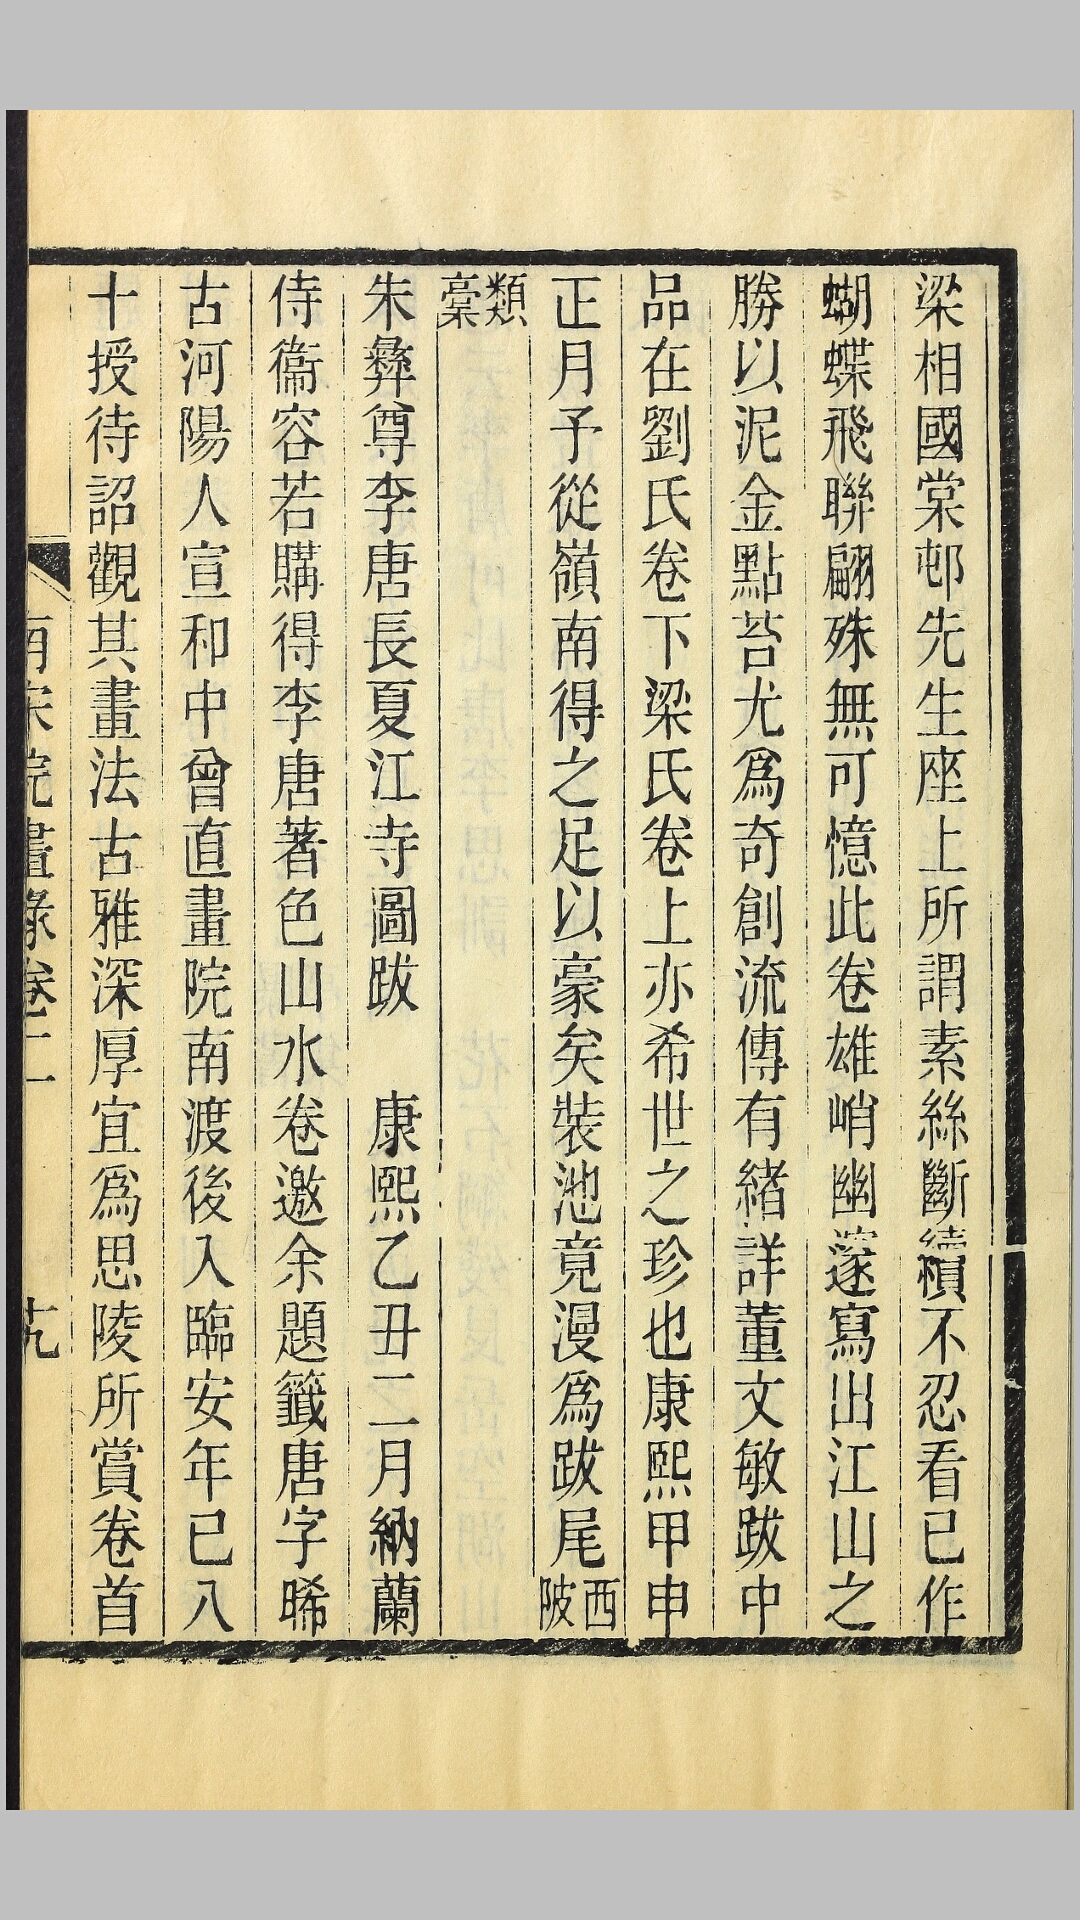 梁相國棠邨先生座上所謂素絲斷續不忍看已作
蝴蝶飛聯翩殊無可憶此卷雄峭幽邃寫出江山之
勝以泥金點苔尤爲奇創流傳有緒詳董文敏跋中
品在劉氏卷下梁氏卷上亦希世之珍也康熙甲申
正月予從嶺南得之足以豪矣裝池竟漫爲跋尾西陂
類稾
朱彝尊李唐長夏江寺圖跋　康熙乙丑二月納蘭
侍衞容若購得李唐著色山水卷邀余題籤唐字晞
古河陽人宣和中曾直畫院南渡後入臨安年已八
十授待詔觀其畫法古雅深厚宜爲思陵所賞卷首
南宋院畫錄卷二
十九